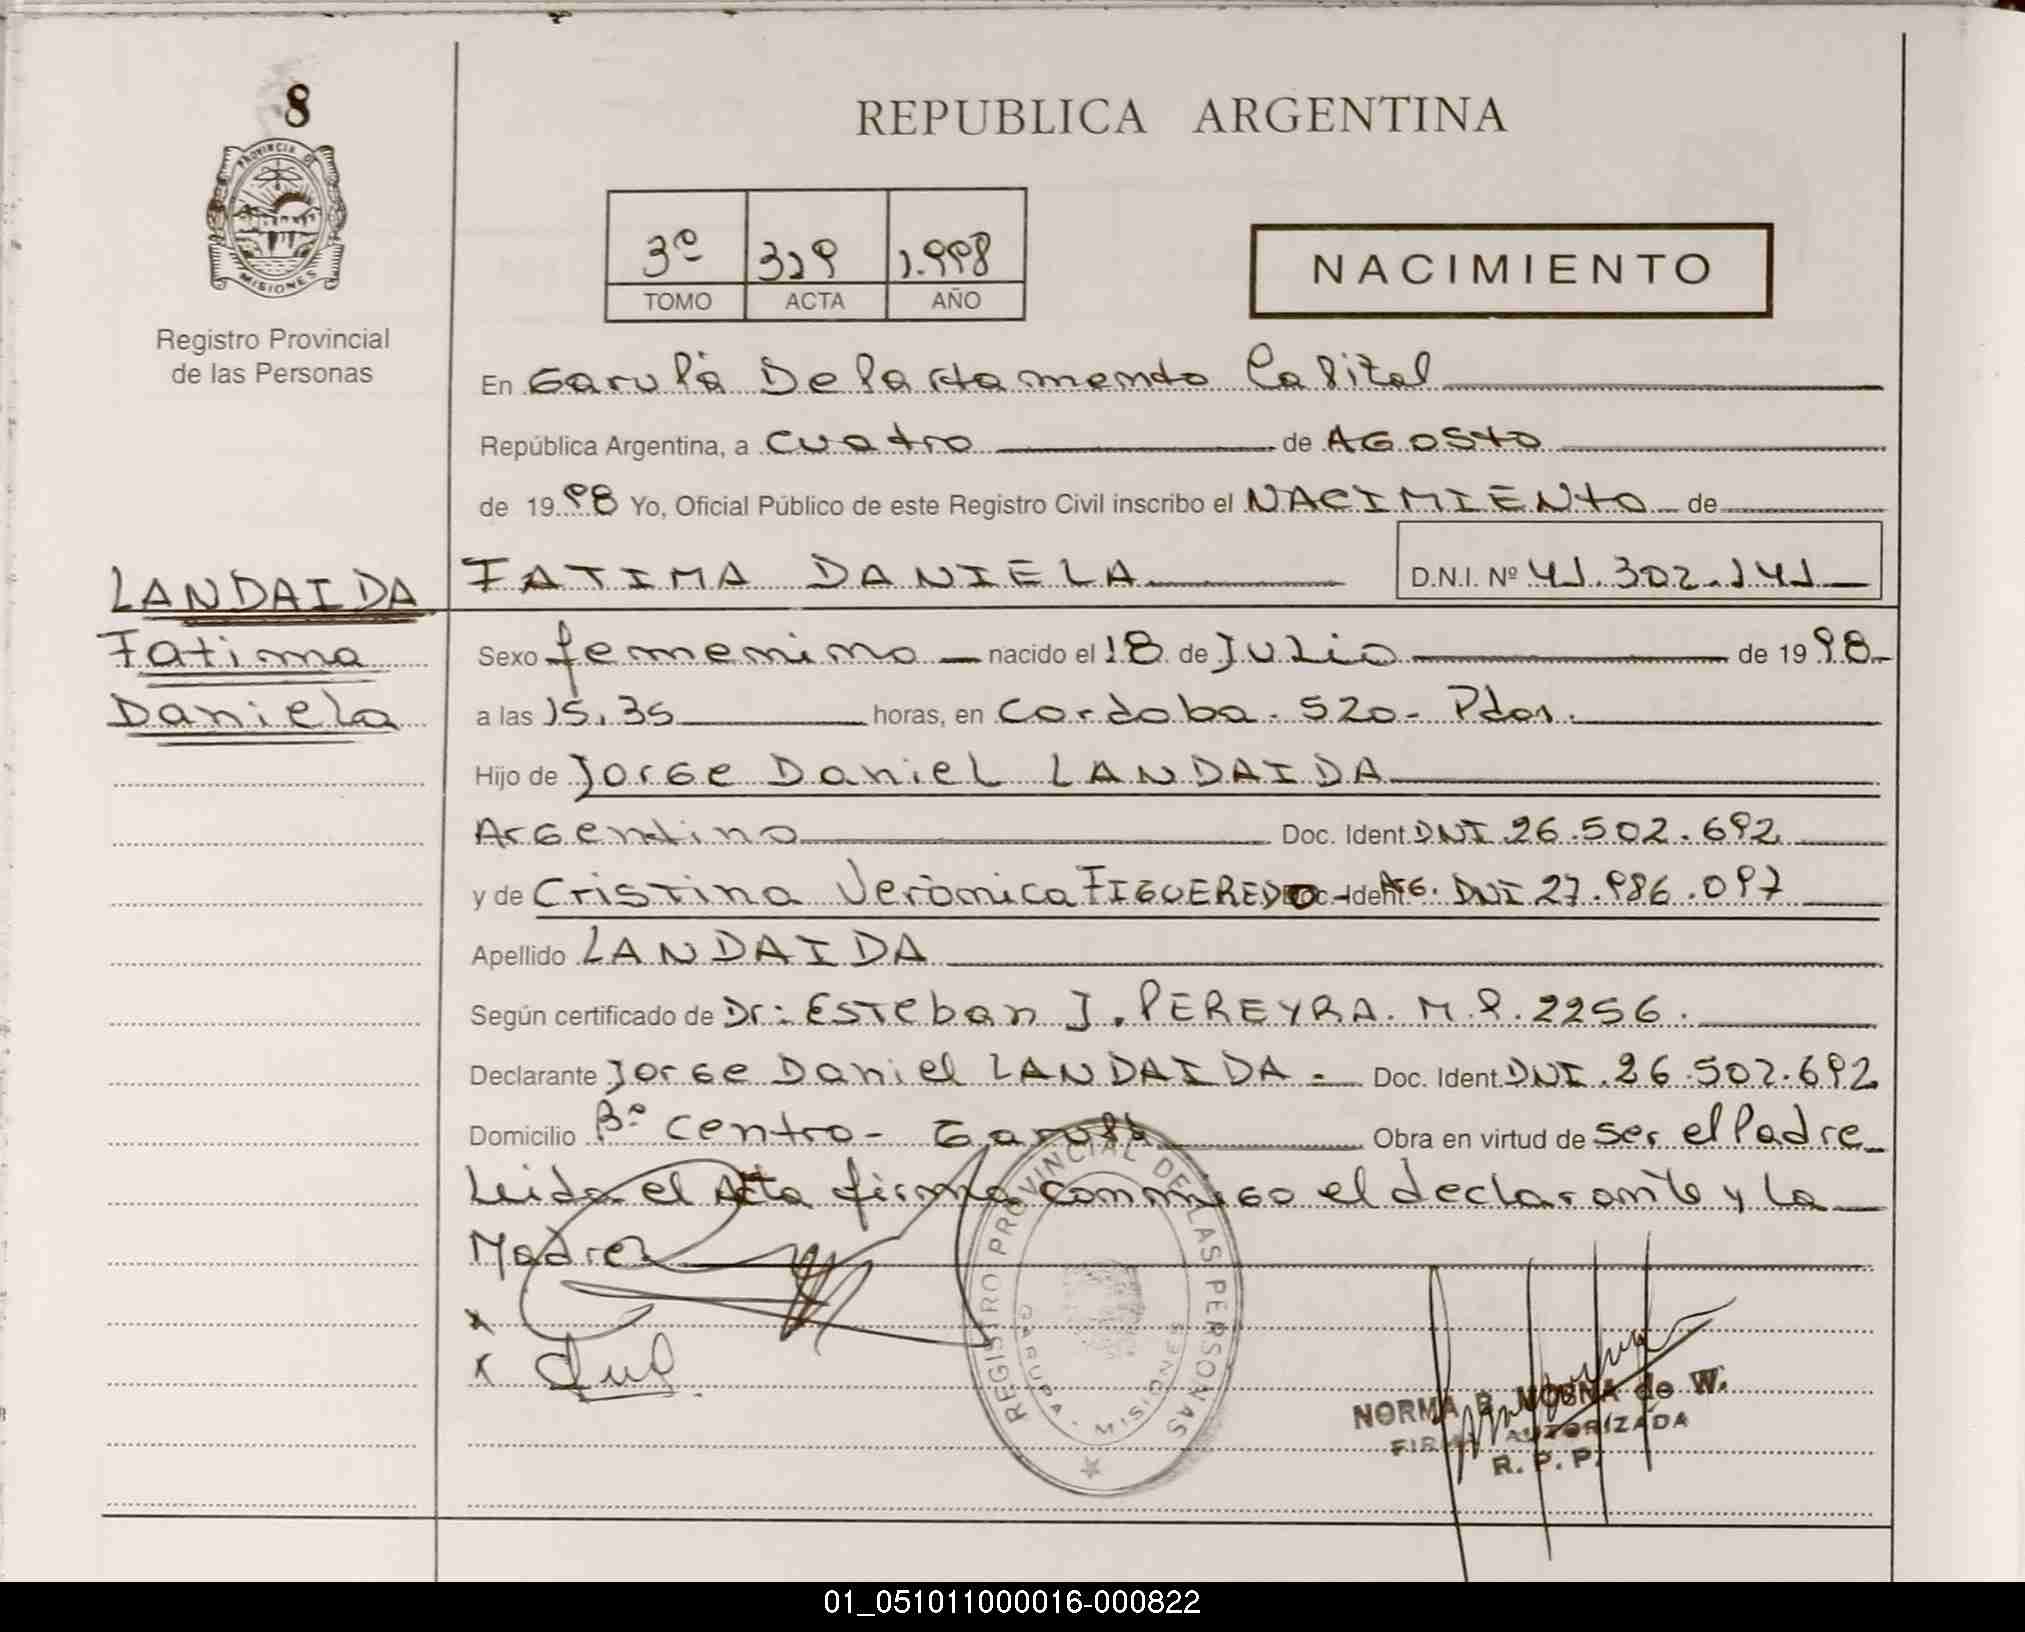 8
PROVINCIA DE
MISIONES
Registro Provincial
de las Personas
REPUBLICA ARGENTINA
3º 329 1.998
TOMO ACTA AÑO
NACIMIENTO
En Garupá Departamento Capital
República Argentina, a cuatro de AGOSTO
de 1998 Yo, Oficial Público de este Registro Civil inscribo el NACIMIENTO de
LANDAIDA
Fatima
Daniela
FATIMA DANIELA D.N.I. Nº 41.302.141
Sexo femenino nacido el 18 de Julio de 1998
a las 15,35 horas, en Cordoba. 520- Pdas.
Hijo de Jorge Daniel LANDAIDA
Argentino Doc. Ident. DNI 26.502.692
y de Cristina Verònica FIGUEREDO Doc. Ident. AG. DNI 27.986.097
Apellido LANDAIDA
Según certificado de Dr: Esteban J. PEREYRA. M.P. 2256.
Declarante Jorge Daniel LANDAIDA. Doc. Ident. DNI. 26.502.692
Domicilio Bº Centro- Garupá Obra en virtud de ser el Padre
Leida el Acta firma conmigo el declarante y la
Madre
x
x
REGISTRO PROVINCIAL DE LAS PERSONAS
GARUPA - MISIONES
NORMA B. de W.
FIRMA AUTORIZADA
R. P. P.
01_051011000016-000822